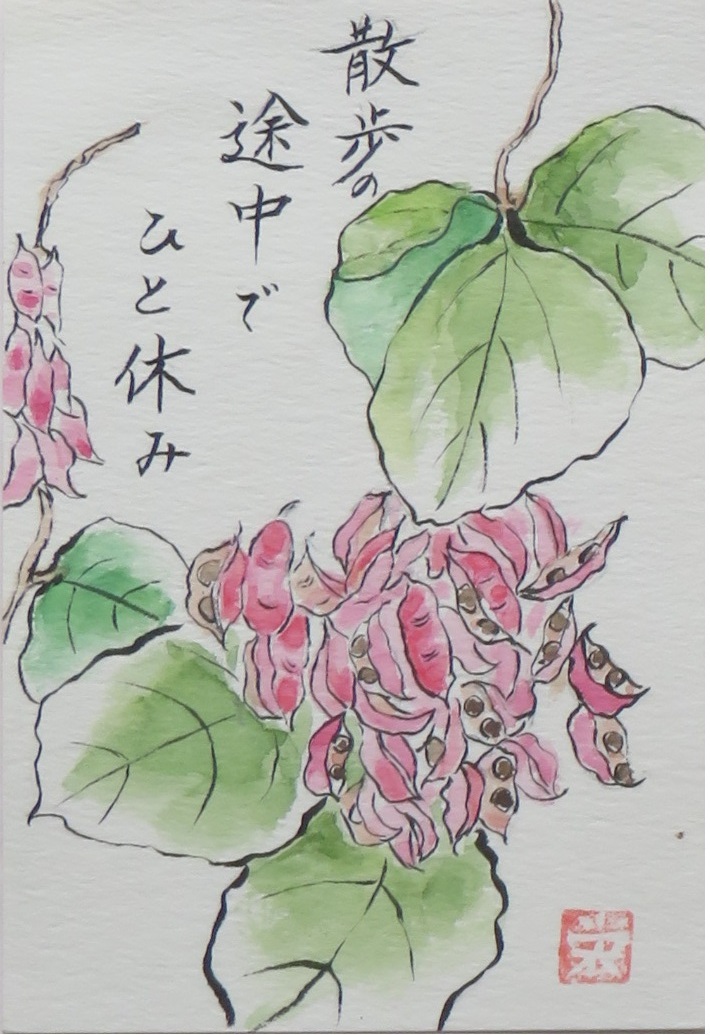 散歩の
途中で
ひと休み